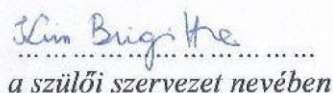 Kim Brigitta
a szülői szervezet nevében